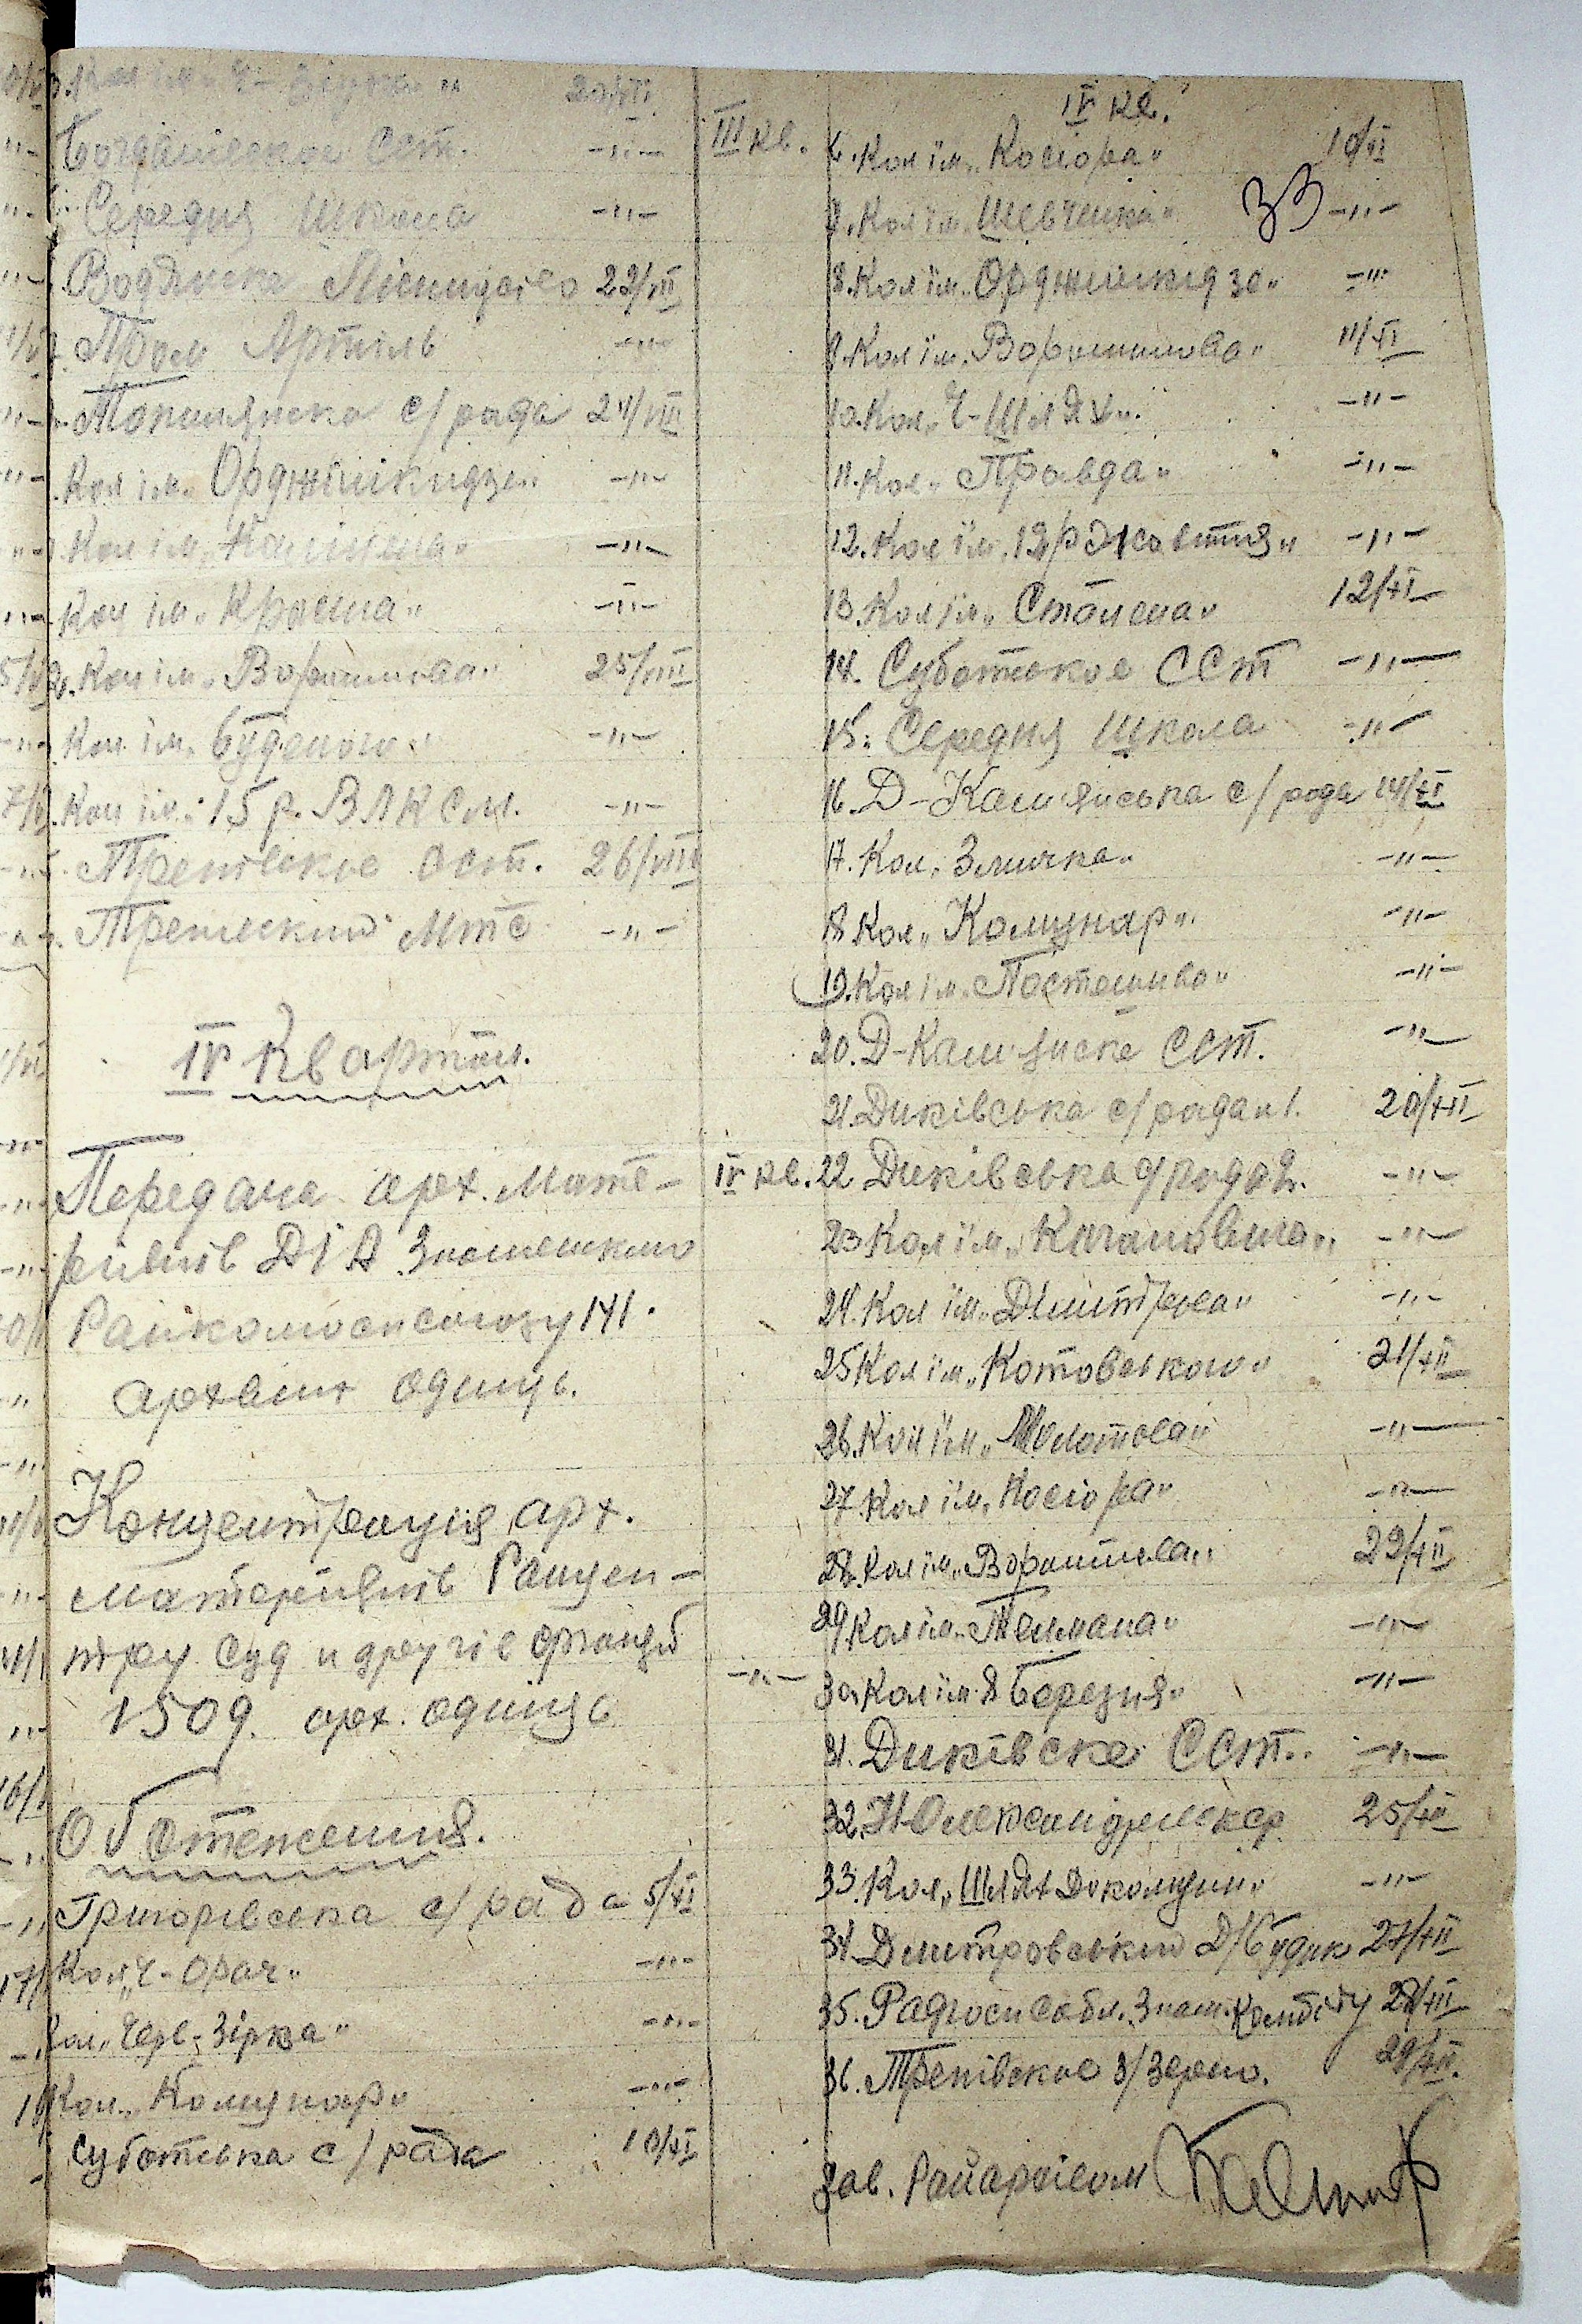 Богданівское Сст. -"-
Середня Школа -"-
Водянске Лісництво 22/VIII
Пром Артіль -"-
с/рада 24/VIII
Кол ім. Орджонікидзе" -"-
Кол ім. Калініна" -"-
Кол ім. "Красіна" -"-
Кол ім. "Ворошилова" 25/VIII
Кол ім. Будьоного" -"-
Кол ім. 15 р. ВЛКСМ. -"-
Трепівское Сст. 26/VIII
Трепівский МТС -"-
IV Квартал.
Передача арх. Мате-
ріялів ДІА Знаменского
141.
архвіних одиниць.
Концентрация арх.
материялів Райцен-
тру Суд и другіе
1509. арх. одиниць
Обстеження.
Григорівська с/рада 5/XI
Кол "Ч-Орач" -"-
Кол. "Черв-Зірка" -"-
Кол. "Комунар" -"-
Суботівка с/рада 10/XI
III Кв.
IV Кв.
33
6. Кол ім. "Косіора" 10/XI
7. Кол ім. "Шевченка" -"-
8. Кол ім. "Орджонікідзе" -"-
9. Кол ім. Ворошилова" 11/XI
10. Кол. "Ч-Шлях". -"-
11. Кол. "Правда" -"-
12. Кол ім. 12 р Жовтня" -"-
13. Кол ім. "Сталена" 12/XI
14. Суботское ССт -"-
15. Середня Школа -"-
16. Д-Камянська с/рада 14/XI
17. Кол. Змичка" -"-
18. Кол. "Комунар". -"-
19. Кол ім. Постешива" -"-
20. Д-Камянске Сст. -"-
21. Диківська с/рада №1. 20/XII
IV кв. 22 Диківська с/рада 2. -"-
23 Кол ім. "Кагановича" -"-
24. Кол ім. "Дімітрова" -"-
25 Кол ім. "Котовського" 21/XII
26. Кол ім. "Молотова" -"-
27. Кол ім. "Косіора" -"-
28. Кол ім. "Ворошилова" 22/XII
29 Кол ім. "Телмана" -"-
-"- 30. Кол ім. 8 Березня" -"-
31. Диківске Сст.. -"-
32. Н-Олександрівска 25/XII
33. Кол. "Шлях До комуни" -"-
34. Дмитровський Д/будик 27/XII
35. 28/XII
36. Трепівское З/Зерно. 29/XII.
Зав. Райархівом